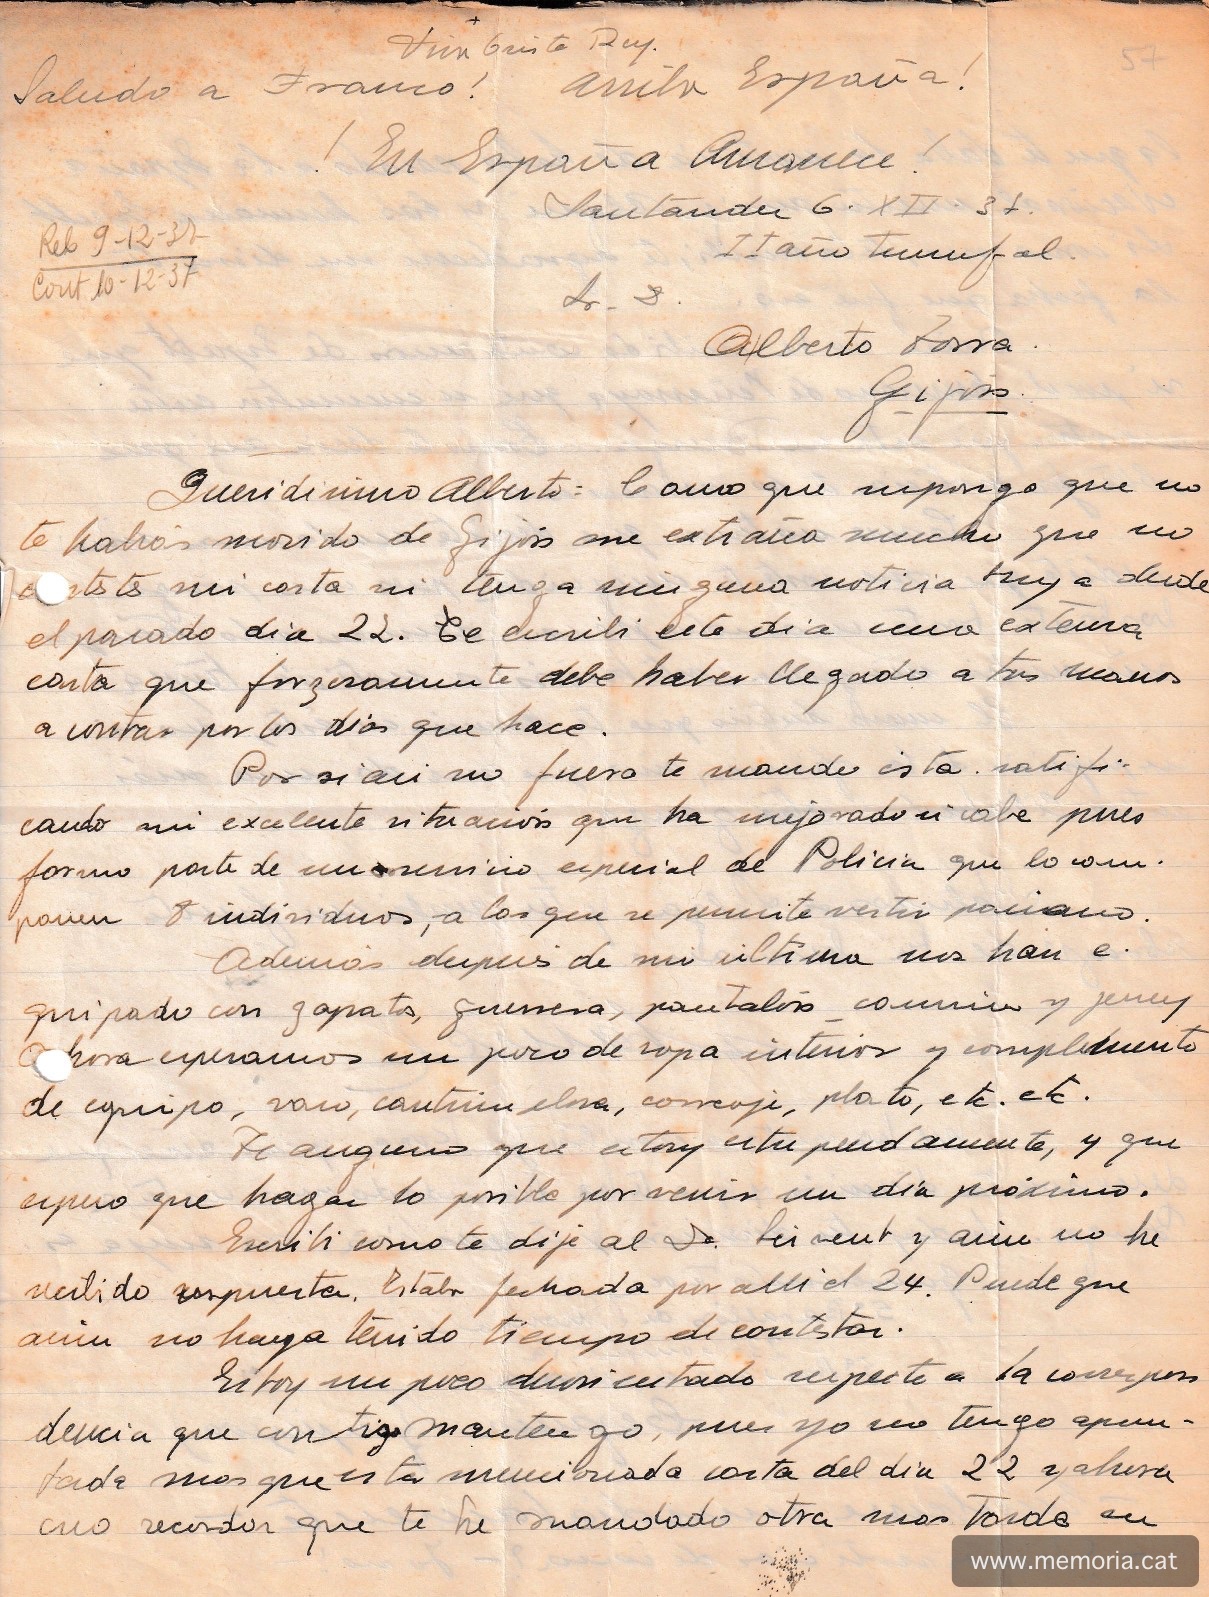 +
Viva Cristo Rey.
57
Saludo a Franco! Arriba España!
! En España Amanece!
Santander 6. XII. 37.
II año triunfal.
Reb 9-12-37
Cont 10-12-37
Sr. D.
Alberto Torra.
Gijón.
Queridisimo Alberto: Como que supongo que no
te habrás movido de Gijón me extraña mucho que no
contestes mi carta ni tenga ninguna noticia tuya desde
el pasado dia 22. Te escribi este dia una extensa
carta que forzosamente debe haber llegado a tus manos
a contar por los dias que hace.
Por si asi no fuera te mando esta ratifi-
cando mi excelente situación que ha mejorado si cabe pues
formo parte de un servicio especial de Policia que lo com-
ponen 8 individuos, a los que se permite vestir paisano.
Además despues de mi última nos han e-
quipado con zapatos, guerrera, pantalón camisa y jersey
Ahora esperamos un poco de ropa interior y complemento
de equipo, vaso, cantimplora, correaje, plato, etc. etc.
Te aseguro que estoy estupendamente, y que
espero que hagas lo posible por venir un día próximo.
Escribi como te dije al Dr. Sirvent y aun no he
recibido respuesta. Estaba fechada por alli el 24. Puede que
aun no haya tenido tiempo de contestar.
Estoy un poco desorientado respecto a la correspon
dencia que contigo mantengo, pues yo no tengo apun-
tada mas que esta mencionada carta del dia 22 y ahora
creo recordar que te he mandado otra mas tarde en
www.memoria.cat